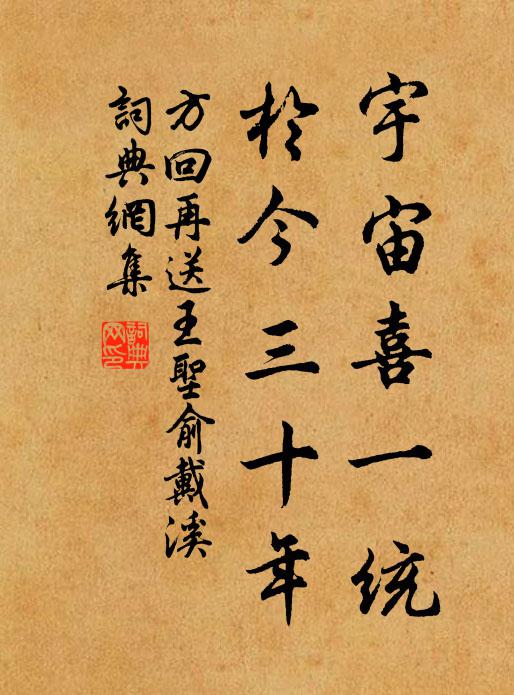 宇宙喜一統
於今三十年
方回再送王聖俞戴溪
詞典網集
詞典
网印